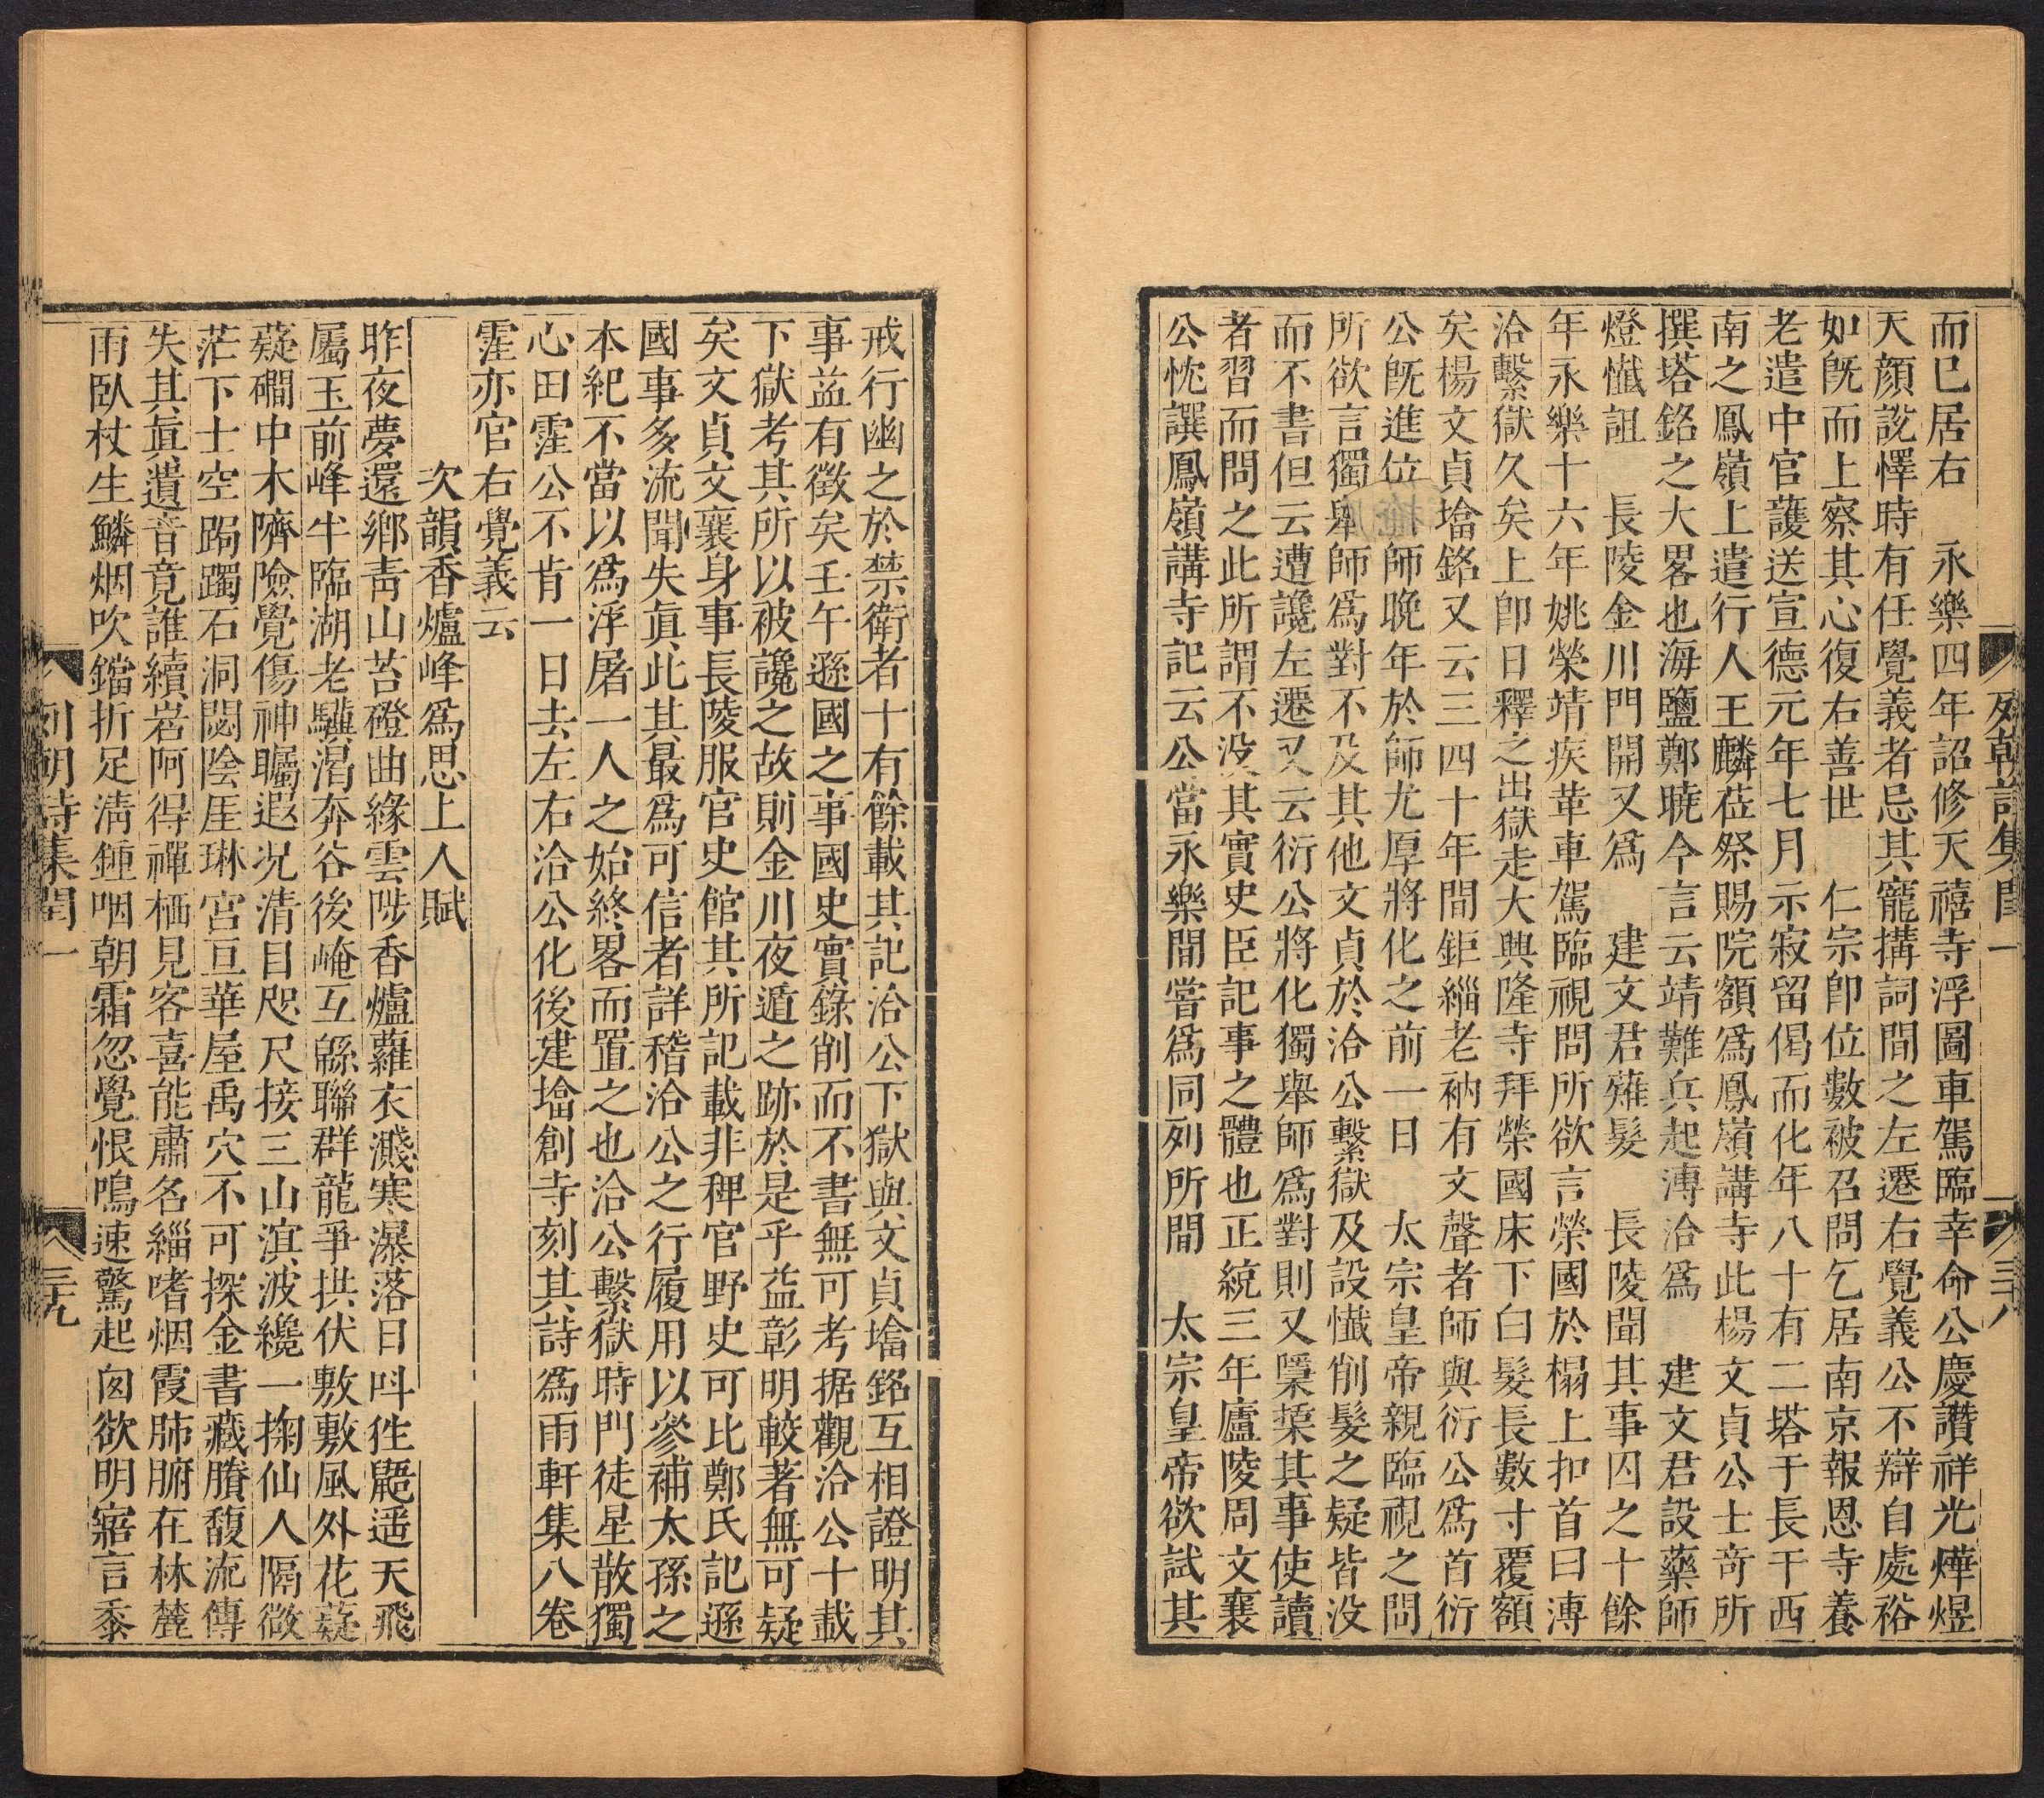 列朝詩集閏一
三十八
而已居右　永樂四年詔修天禧寺浮圖車駕臨幸命公慶讚祥光燁煜
天顏說懌時有任覺義者忌其寵搆詞間之左遷右覺義公不辯自處裕
如旣而上察其心復右善世　仁宗卽位數被召問乞居南京報恩寺養
老遣中官護送宣德元年七月示寂留偈而化年八十有二塔于長干西
南之鳳嶺上遣行人王麟莅祭賜院額爲鳳嶺講寺此楊文貞公士奇所
撰塔銘之大畧也海鹽鄭曉今言云靖難兵起溥洽爲　建文君設藥師
燈懺詛　長陵金川門開又爲　建文君薙髮　長陵聞其事囚之十餘
年永樂十六年姚榮靖疾革車駕臨視問所欲言榮國於榻上扣首曰溥
洽繫獄久矣上卽日釋之出獄走大興隆寺拜榮國床下白髮長數寸覆額
矣楊文貞墖銘又云三四十年間鉅緇老衲有文聲者師與衍公爲首衍
公旣進位師晚年於師尤厚將化之前一日　太宗皇帝親臨視之問
所欲言獨舉師爲對不及其他文貞於洽公繫獄及設懺削髮之疑皆没
而不書但云遭讒左遷又云衍公將化獨舉師爲對則又隱栝其事使讀
者習而問之此所謂不没其實史臣記事之體也正統三年廬陵周文襄
公忱譔鳳嶺講寺記云公當永樂間嘗爲同列所間　太宗皇帝欲試其
戒行幽之於禁衛者十有餘載其記洽公下獄與文貞墖銘互相證明其
事益有徵矣壬午遜國之事國史實錄削而不書無可考据觀洽公十載
下獄考其所以被讒之故則金川夜遁之跡於是乎益彰明較著無可疑
矣文貞文襄身事長陵服官史館其所記載非稗官野史可比鄭氏記遜
國事多流聞失眞此其最爲可信者詳稽洽公之行履用以參補太孫之
本紀不當以爲浮屠一人之始終畧而置之也洽公繫獄時門徒星散獨
心田霔公不肯一日去左右洽公化後建墖創寺刻其詩爲雨軒集八卷
霔亦官右覺義云
次韻香爐峰爲思上人賦
昨夜夢還鄉靑山苔磴曲緣雲陟香爐蘿衣濺寒瀑落日呌狌鼯遥天飛
屬玉前峰牛臨湖老驥渴奔谷後崦互緜聯群龍爭拱伏敷敷風外花薿
薿磵中木隮險覺傷神矚遐况清目咫尺接三山溟波纔一掬仙人隔微
茫下士空跼躅石洞閟陰厓琳宮亘華屋禹穴不可探金書藏臢馥流傳
失其眞遺音竟誰續岩阿得禪栖見客喜能肅名緇嗜烟霞肺腑在林麓
雨臥杖生鱗烟吹鐺折足淸鍾咽朝霜忽覺恨鳴速驚起囪欲明寤言黍
列朝詩集閏一
三十九